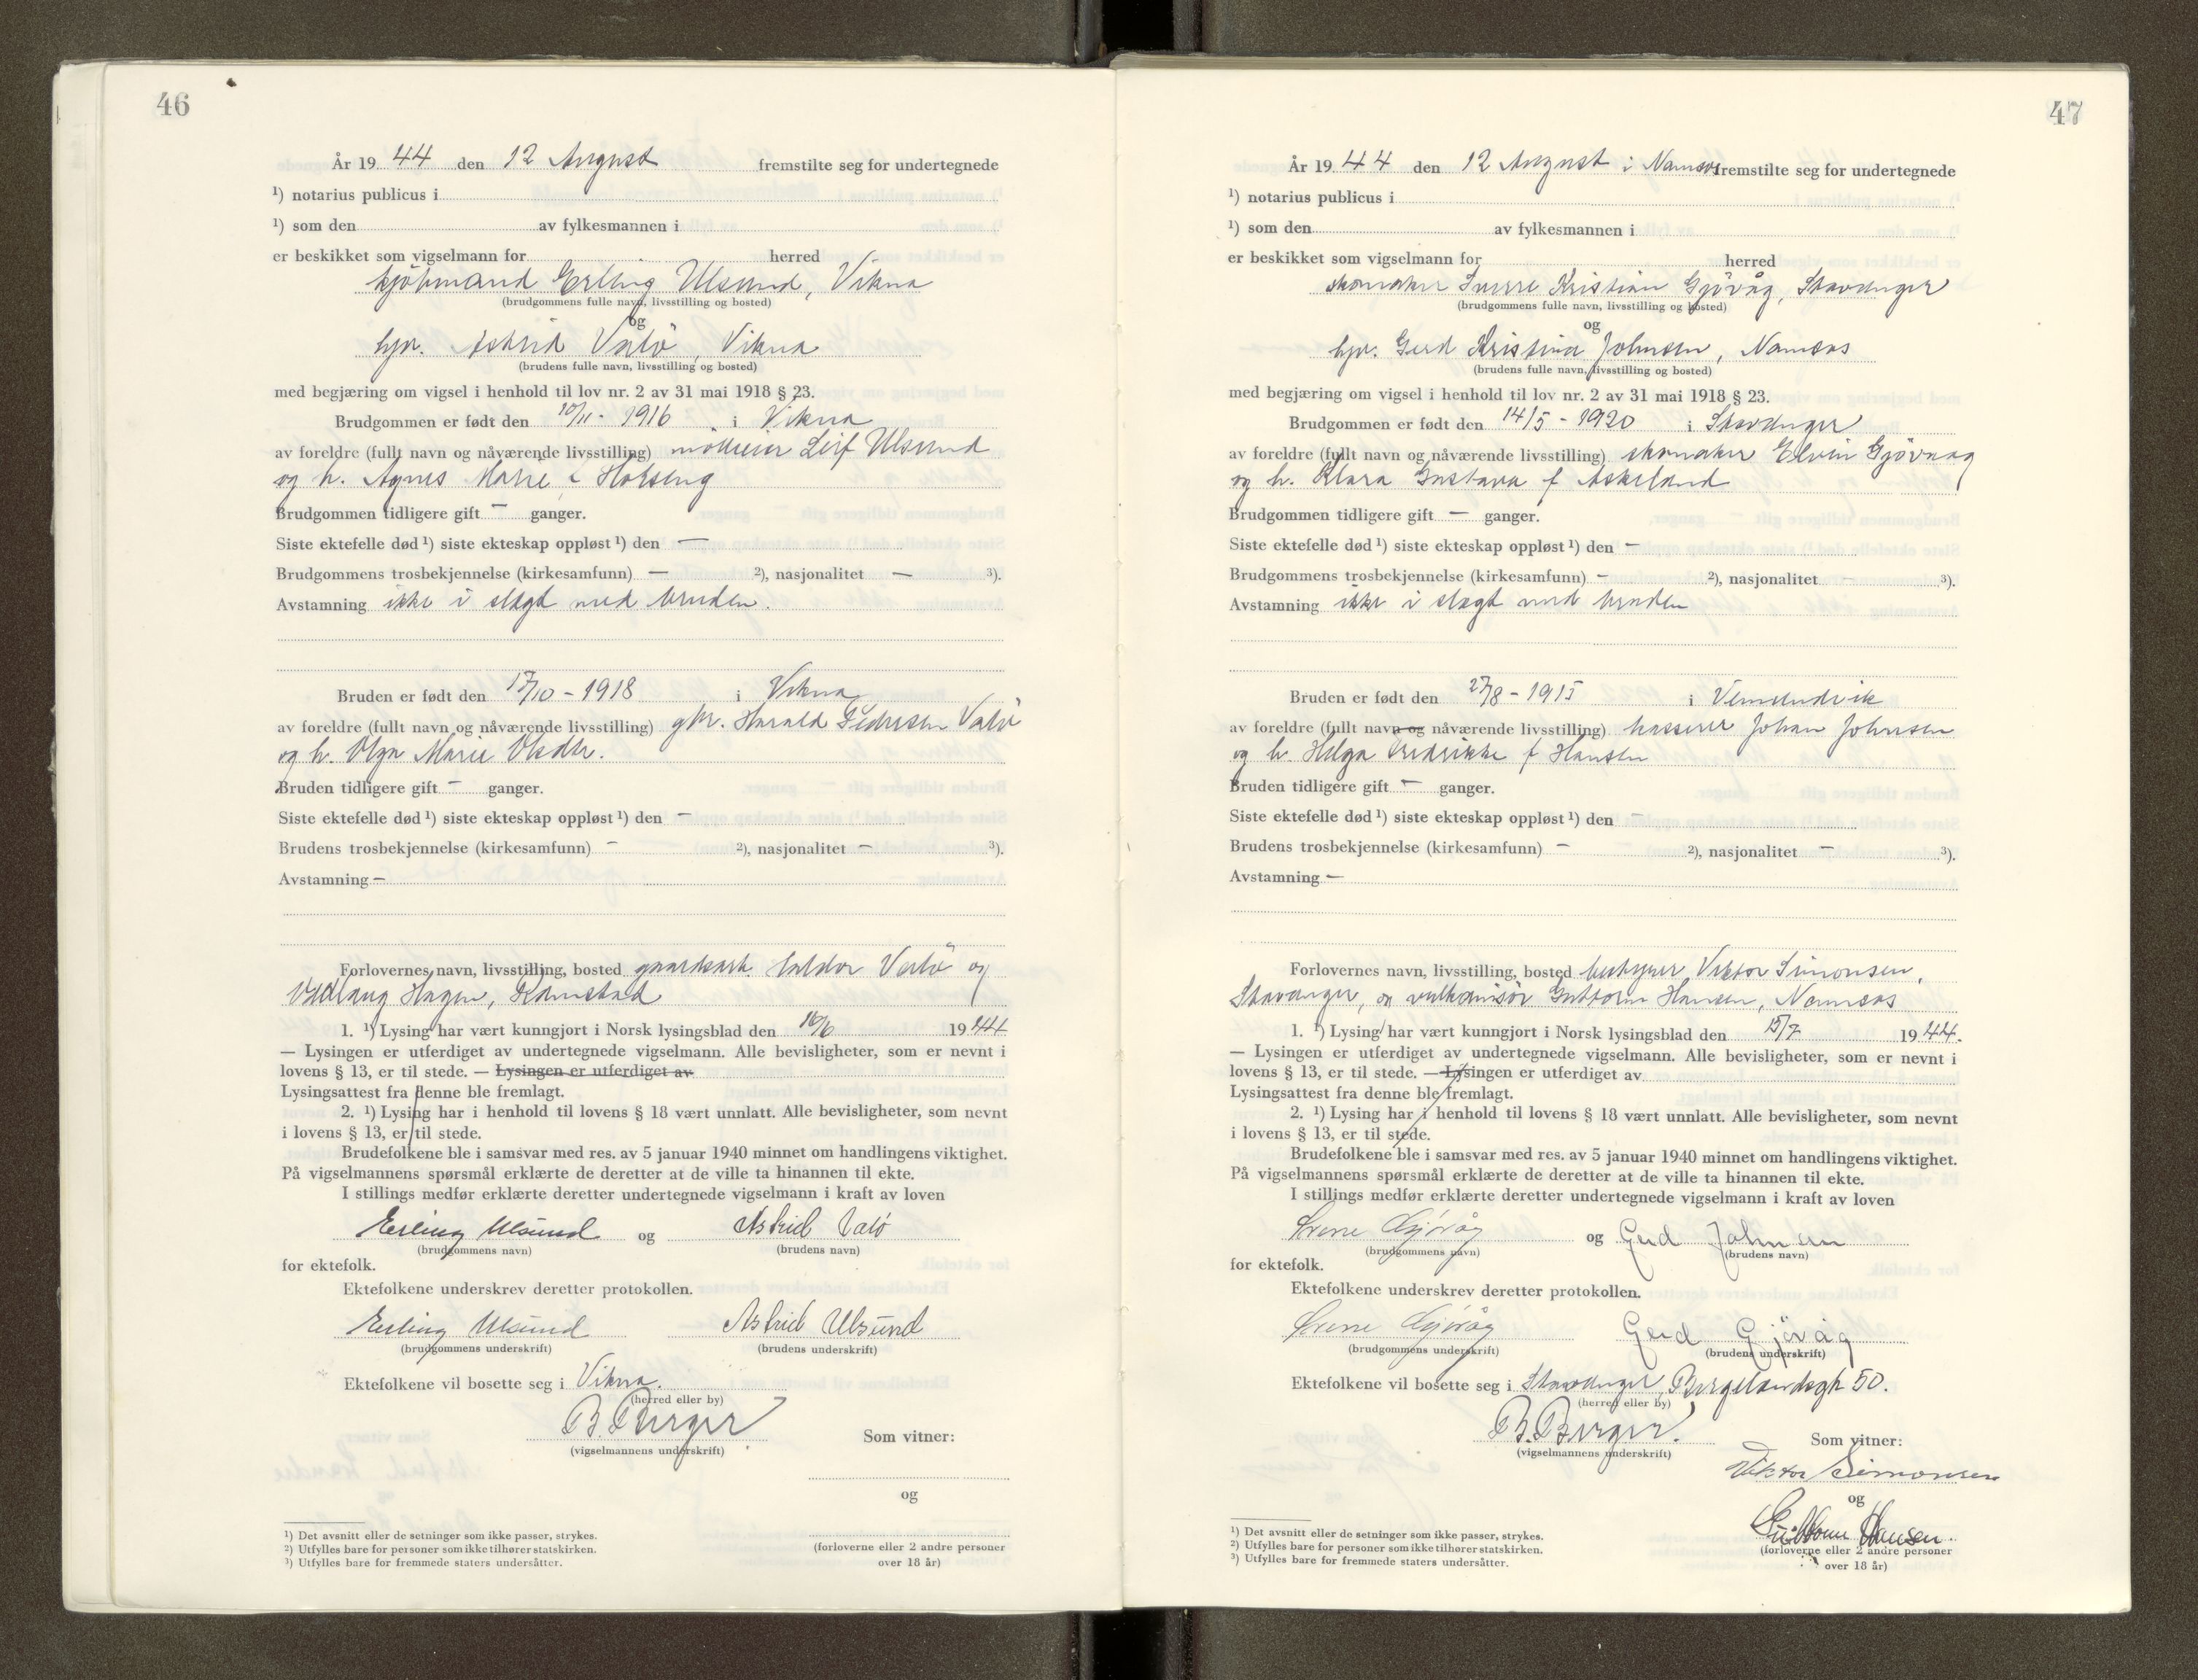 46
År 19 44 den 12 August fremstilte seg for undertegnede
¹) notarius publicus i
¹) som den av fylkesmannen i
er beskikket som vigselmann for herred
kjøbmand Erling Ulsund, Vikna
(brudgommens fulle navn, livsstilling og bosted)
og
hjv. Astrid Valö, Vikna
(brudens fulle navn, livsstilling og bosted)
med begjæring om vigsel i henhold til lov nr. 2 av 31 mai 1918 § 23.
Brudgommen er født den 10/11 - 1916 i Vikna
av foreldre (fullt navn og nåværende livsstilling) mölleier Leif Ulsund
og h. Agnes Marie f Horseng
Brudgommen tidligere gift — ganger.
Siste ektefelle død ¹) siste ekteskap oppløst ¹) den —
Brudgommens trosbekjennelse (kirkesamfunn) — ²), nasjonalitet — ³).
Avstamning ikke i slegt med bruden.
Bruden er født den 17/10 - 1918 i Vikna
av foreldre (fullt navn og nåværende livsstilling) gbr. Harald Pedersen Valö
og h. Olga Marie Olsdtr.
Bruden tidligere gift — ganger.
Siste ektefelle død ¹) siste ekteskap oppløst ¹) den —
Brudens trosbekjennelse (kirkesamfunn) — ²), nasjonalitet — ³).
Avstamning —
Forlovernes navn, livsstilling, bosted gaardsarb. Haldor Valö og
Hagen, Ramstad
1. ¹) Lysing har vært kunngjort i Norsk lysingsblad den 16/6 19 44
— Lysingen er utferdiget av undertegnede vigselmann. Alle bevisligheter, som er nevnt i
lovens § 13, er til stede. — Lysingen er utferdiget av
Lysingsattest fra denne ble fremlagt.
2. ¹) Lysing har i henhold til lovens § 18 vært unnlatt. Alle bevisligheter, som nevnt
i lovens § 13, er til stede.
Brudefolkene ble i samsvar med res. av 5 januar 1940 minnet om handlingens viktighet.
På vigselmannens spørsmål erklærte de deretter at de ville ta hinannen til ekte.
I stillings medfør erklærte deretter undertegnede vigselmann i kraft av loven
Erling Ulsund og Astrid Valö
(brudgommens navn) (brudens navn)
for ektefolk.
Ektefolkene underskrev deretter protokollen.
Erling Ulsund Astrid Ulsund
(brudgommens underskrift) (brudens underskrift)
Ektefolkene vil bosette seg i Vikna.
(herred eller by)
B. Berger
(vigselmannens underskrift)
Som vitner:
og
¹) Det avsnitt eller de setninger som ikke passer, strykes.
²) Utfylles bare for personer som ikke tilhører statskirken.
³) Utfylles bare for fremmede staters undersåtter.
(forloverne eller 2 andre personer
over 18 år)
47
År 19 44 den 12 August i Namsos fremstilte seg for undertegnede
¹) notarius publicus i
¹) som den av fylkesmannen i
er beskikket som vigselmann for herred
skomaker Sverre Kristian Gjövåg, Stavanger
(brudgommens fulle navn, livsstilling og bosted)
og
hjv. Gerd Kristina Johnsen, Namsos
(brudens fulle navn, livsstilling og bosted)
med begjæring om vigsel i henhold til lov nr. 2 av 31 mai 1918 § 23.
Brudgommen er født den 14/5 - 1920 i Stavanger
av foreldre (fullt navn og nåværende livsstilling) skomaker Elvin Gjövaag
og h. Klara Gustava f Askeland
Brudgommen tidligere gift — ganger.
Siste ektefelle død ¹) siste ekteskap oppløst ¹) den —
Brudgommens trosbekjennelse (kirkesamfunn) — ²), nasjonalitet — ³).
Avstamning ikke i slegt med bruden
Bruden er født den 27/8 - 1915 i Vemundvik
av foreldre (fullt navn og nåværende livsstilling) kasserer Johan Johnsen
og h. Helga Fredrikke f Hansen
Bruden tidligere gift — ganger.
Siste ektefelle død ¹) siste ekteskap oppløst ¹) den —
Brudens trosbekjennelse (kirkesamfunn) — ²), nasjonalitet — ³).
Avstamning —
Forlovernes navn, livsstilling, bosted bestyrer Viktor Simonsen,
Stavanger, og vulkanisör Guttorm Hansen, Namsos
1. ¹) Lysing har vært kunngjort i Norsk lysingsblad den 15/7 19 44.
— Lysingen er utferdiget av undertegnede vigselmann. Alle bevisligheter, som er nevnt i
lovens § 13, er til stede. — Lysingen er utferdiget av
Lysingsattest fra denne ble fremlagt.
2. ¹) Lysing har i henhold til lovens § 18 vært unnlatt. Alle bevisligheter, som nevnt
i lovens § 13, er til stede.
Brudefolkene ble i samsvar med res. av 5 januar 1940 minnet om handlingens viktighet.
På vigselmannens spørsmål erklærte de deretter at de ville ta hinannen til ekte.
I stillings medfør erklærte deretter undertegnede vigselmann i kraft av loven
Sverre Gjövåg og Gerd Johnsen
(brudgommens navn) (brudens navn)
for ektefolk.
Ektefolkene underskrev deretter protokollen.
Sverre Gjövåg Gerd Gjövåg
(brudgommens underskrift) (brudens underskrift)
Ektefolkene vil bosette seg i Stavanger, Bergelandsgt 50.
(herred eller by)
B. Berger.
(vigselmannens underskrift)
Som vitner:
Viktor Simonsen
og
Guttorm Hansen.
¹) Det avsnitt eller de setninger som ikke passer, strykes.
²) Utfylles bare for personer som ikke tilhører statskirken.
³) Utfylles bare for fremmede staters undersåtter.
(forloverne eller 2 andre personer
over 18 år)